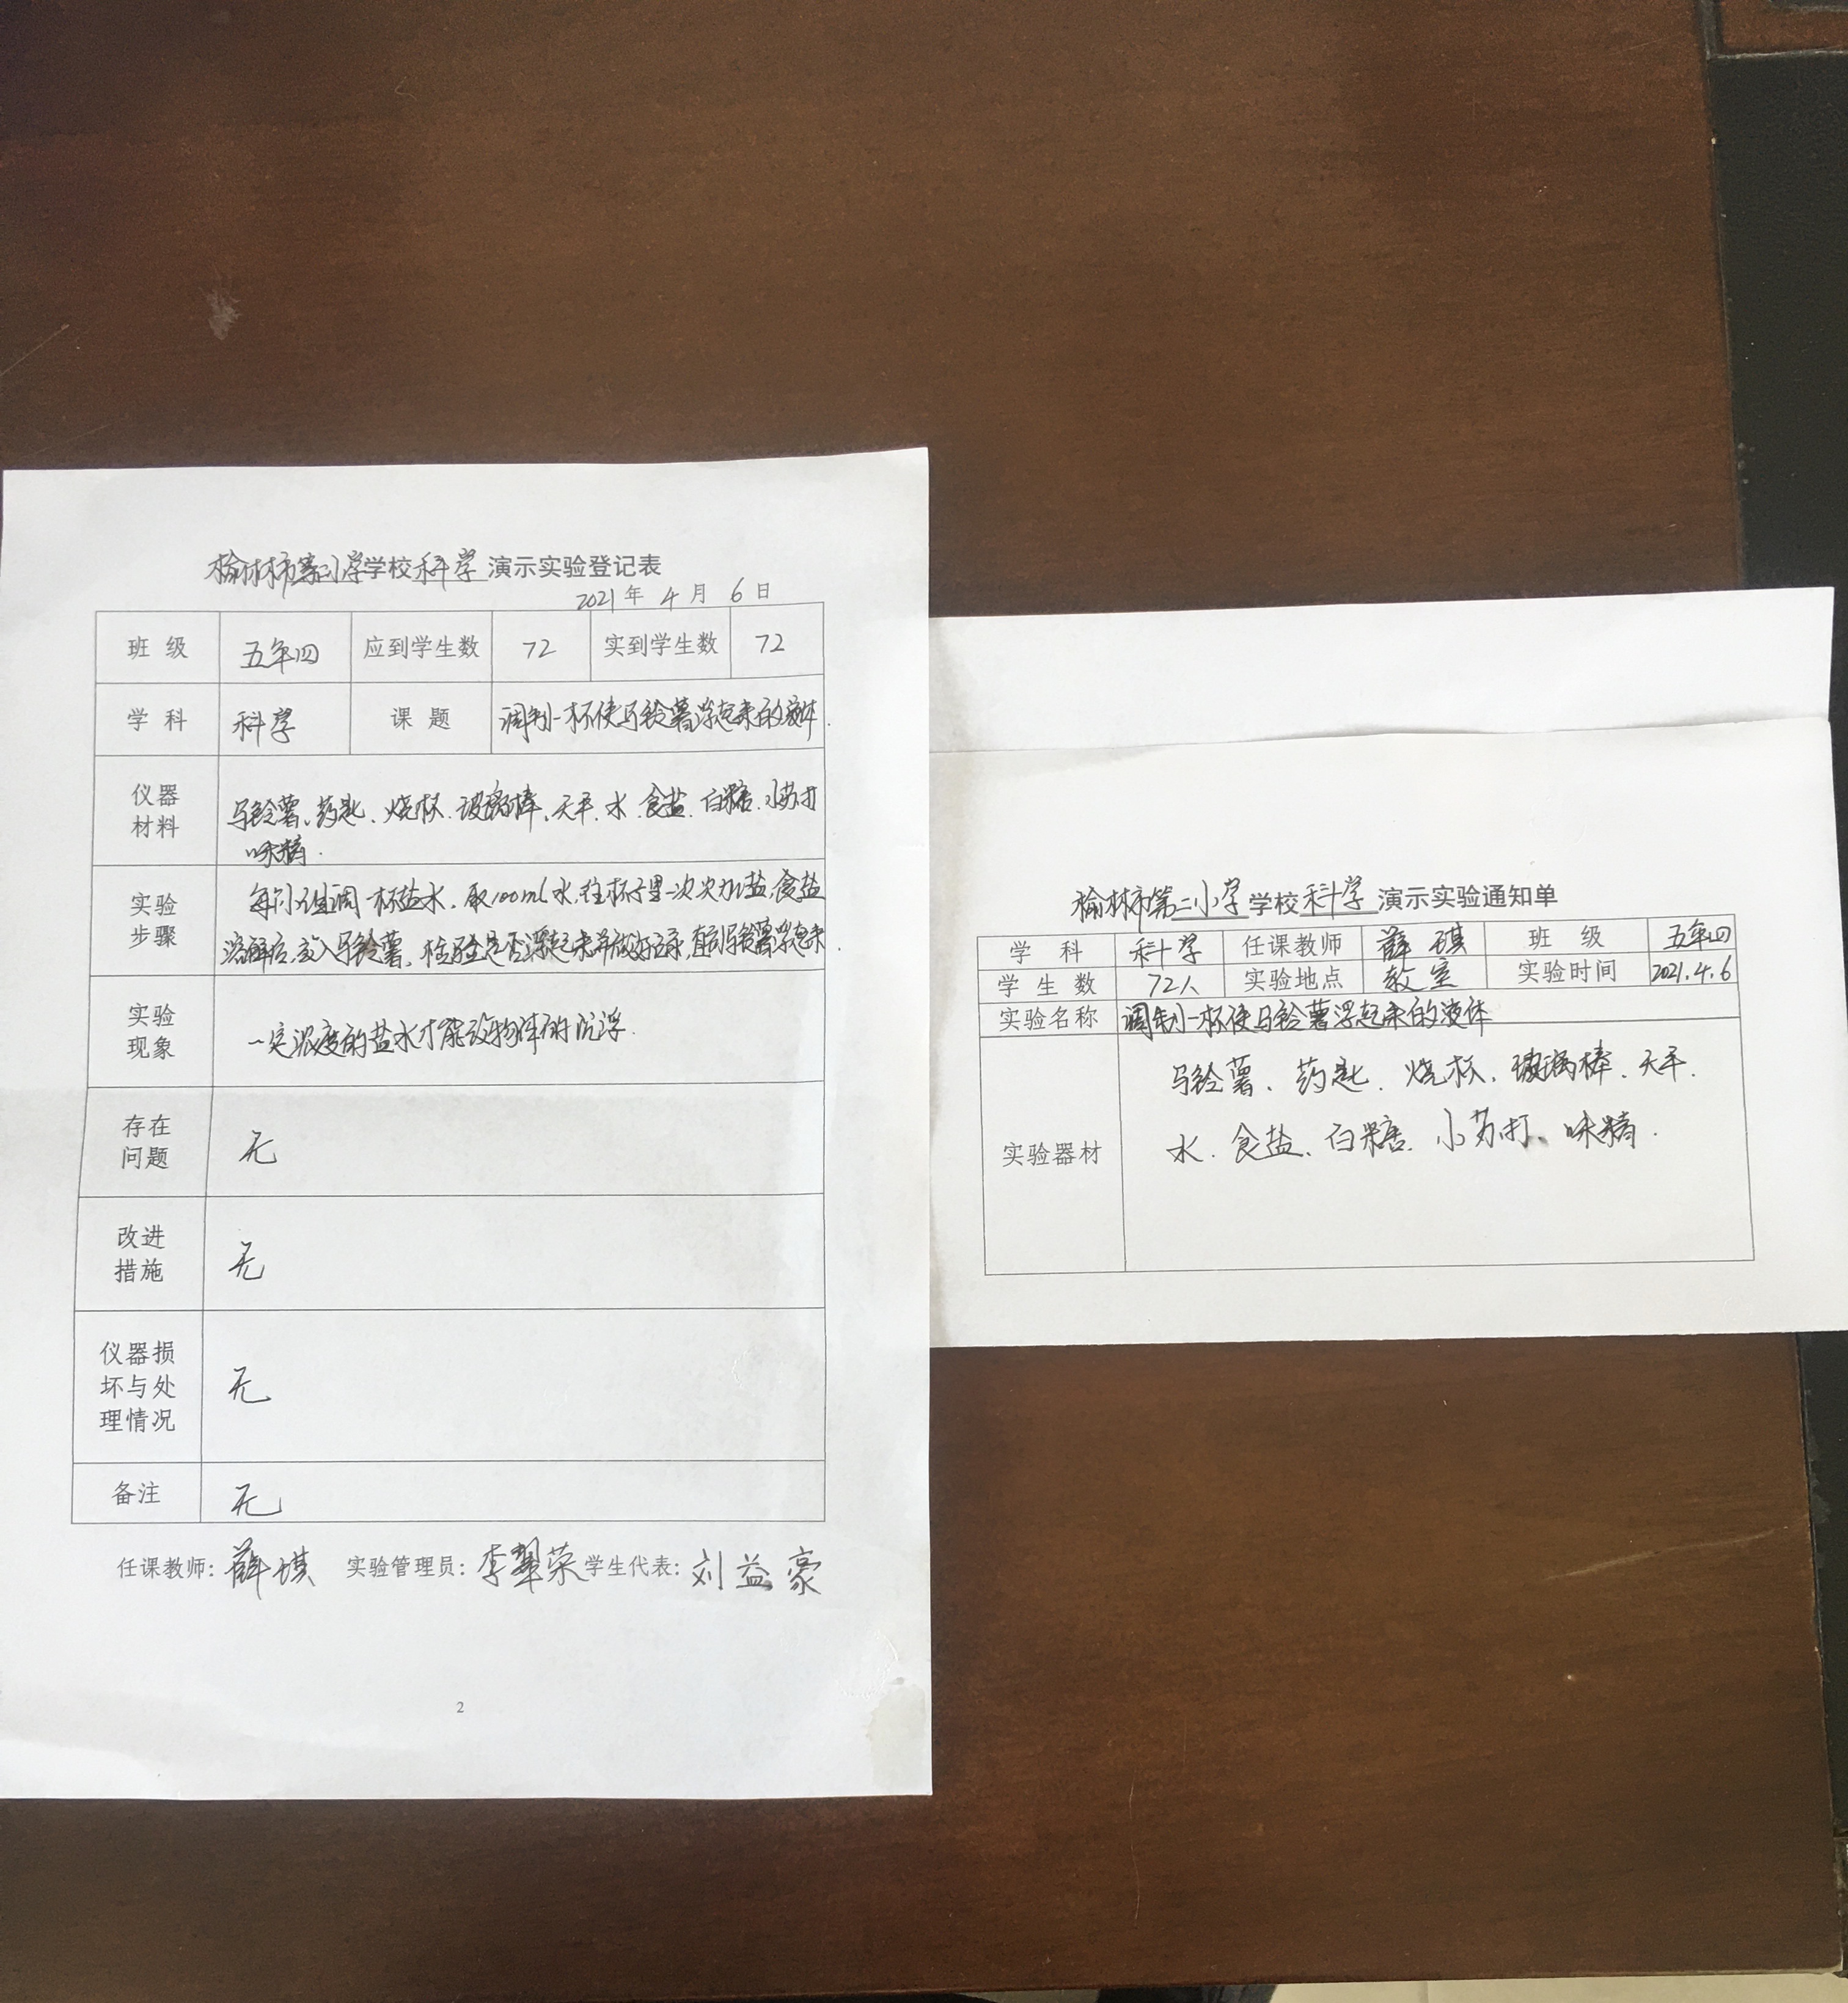 榆林市第二小学学校科学演示实验登记表
2021年 4月 6日
班级 五年四 应到学生数 72 实到学生数 72
学科 科学 课题 调制一杯使马铃薯浮起来的液体.
仪器
材料
马铃薯、药匙、烧杯、玻璃棒、天平、水、食盐、白糖、小苏打
味精.
实验
步骤
每小组调一杯盐水,取100ml水,往杯子里一次次加盐,食盐
溶解后,放入马铃薯,检验是否浮起来并做好记录,直到马铃薯浮起来.
实验
现象
一定浓度的盐水才能改物体的沉浮.
存在
问题
无
改进
措施
无
仪器损
坏与处
理情况
无
备注 无
任课教师:薛琪 实验管理员:李翠荣 学生代表:刘益豪
2
榆林市第二小学学校科学演示实验通知单
学科 科学 任课教师 薛琪 班级 五年四
学生数 72人 实验地点 教室 实验时间 2021.4.6
实验名称 调制一杯使马铃薯浮起来的液体
实验器材
马铃薯、药匙、烧杯、玻璃棒、天平、
水、食盐、白糖、小苏打、味精.